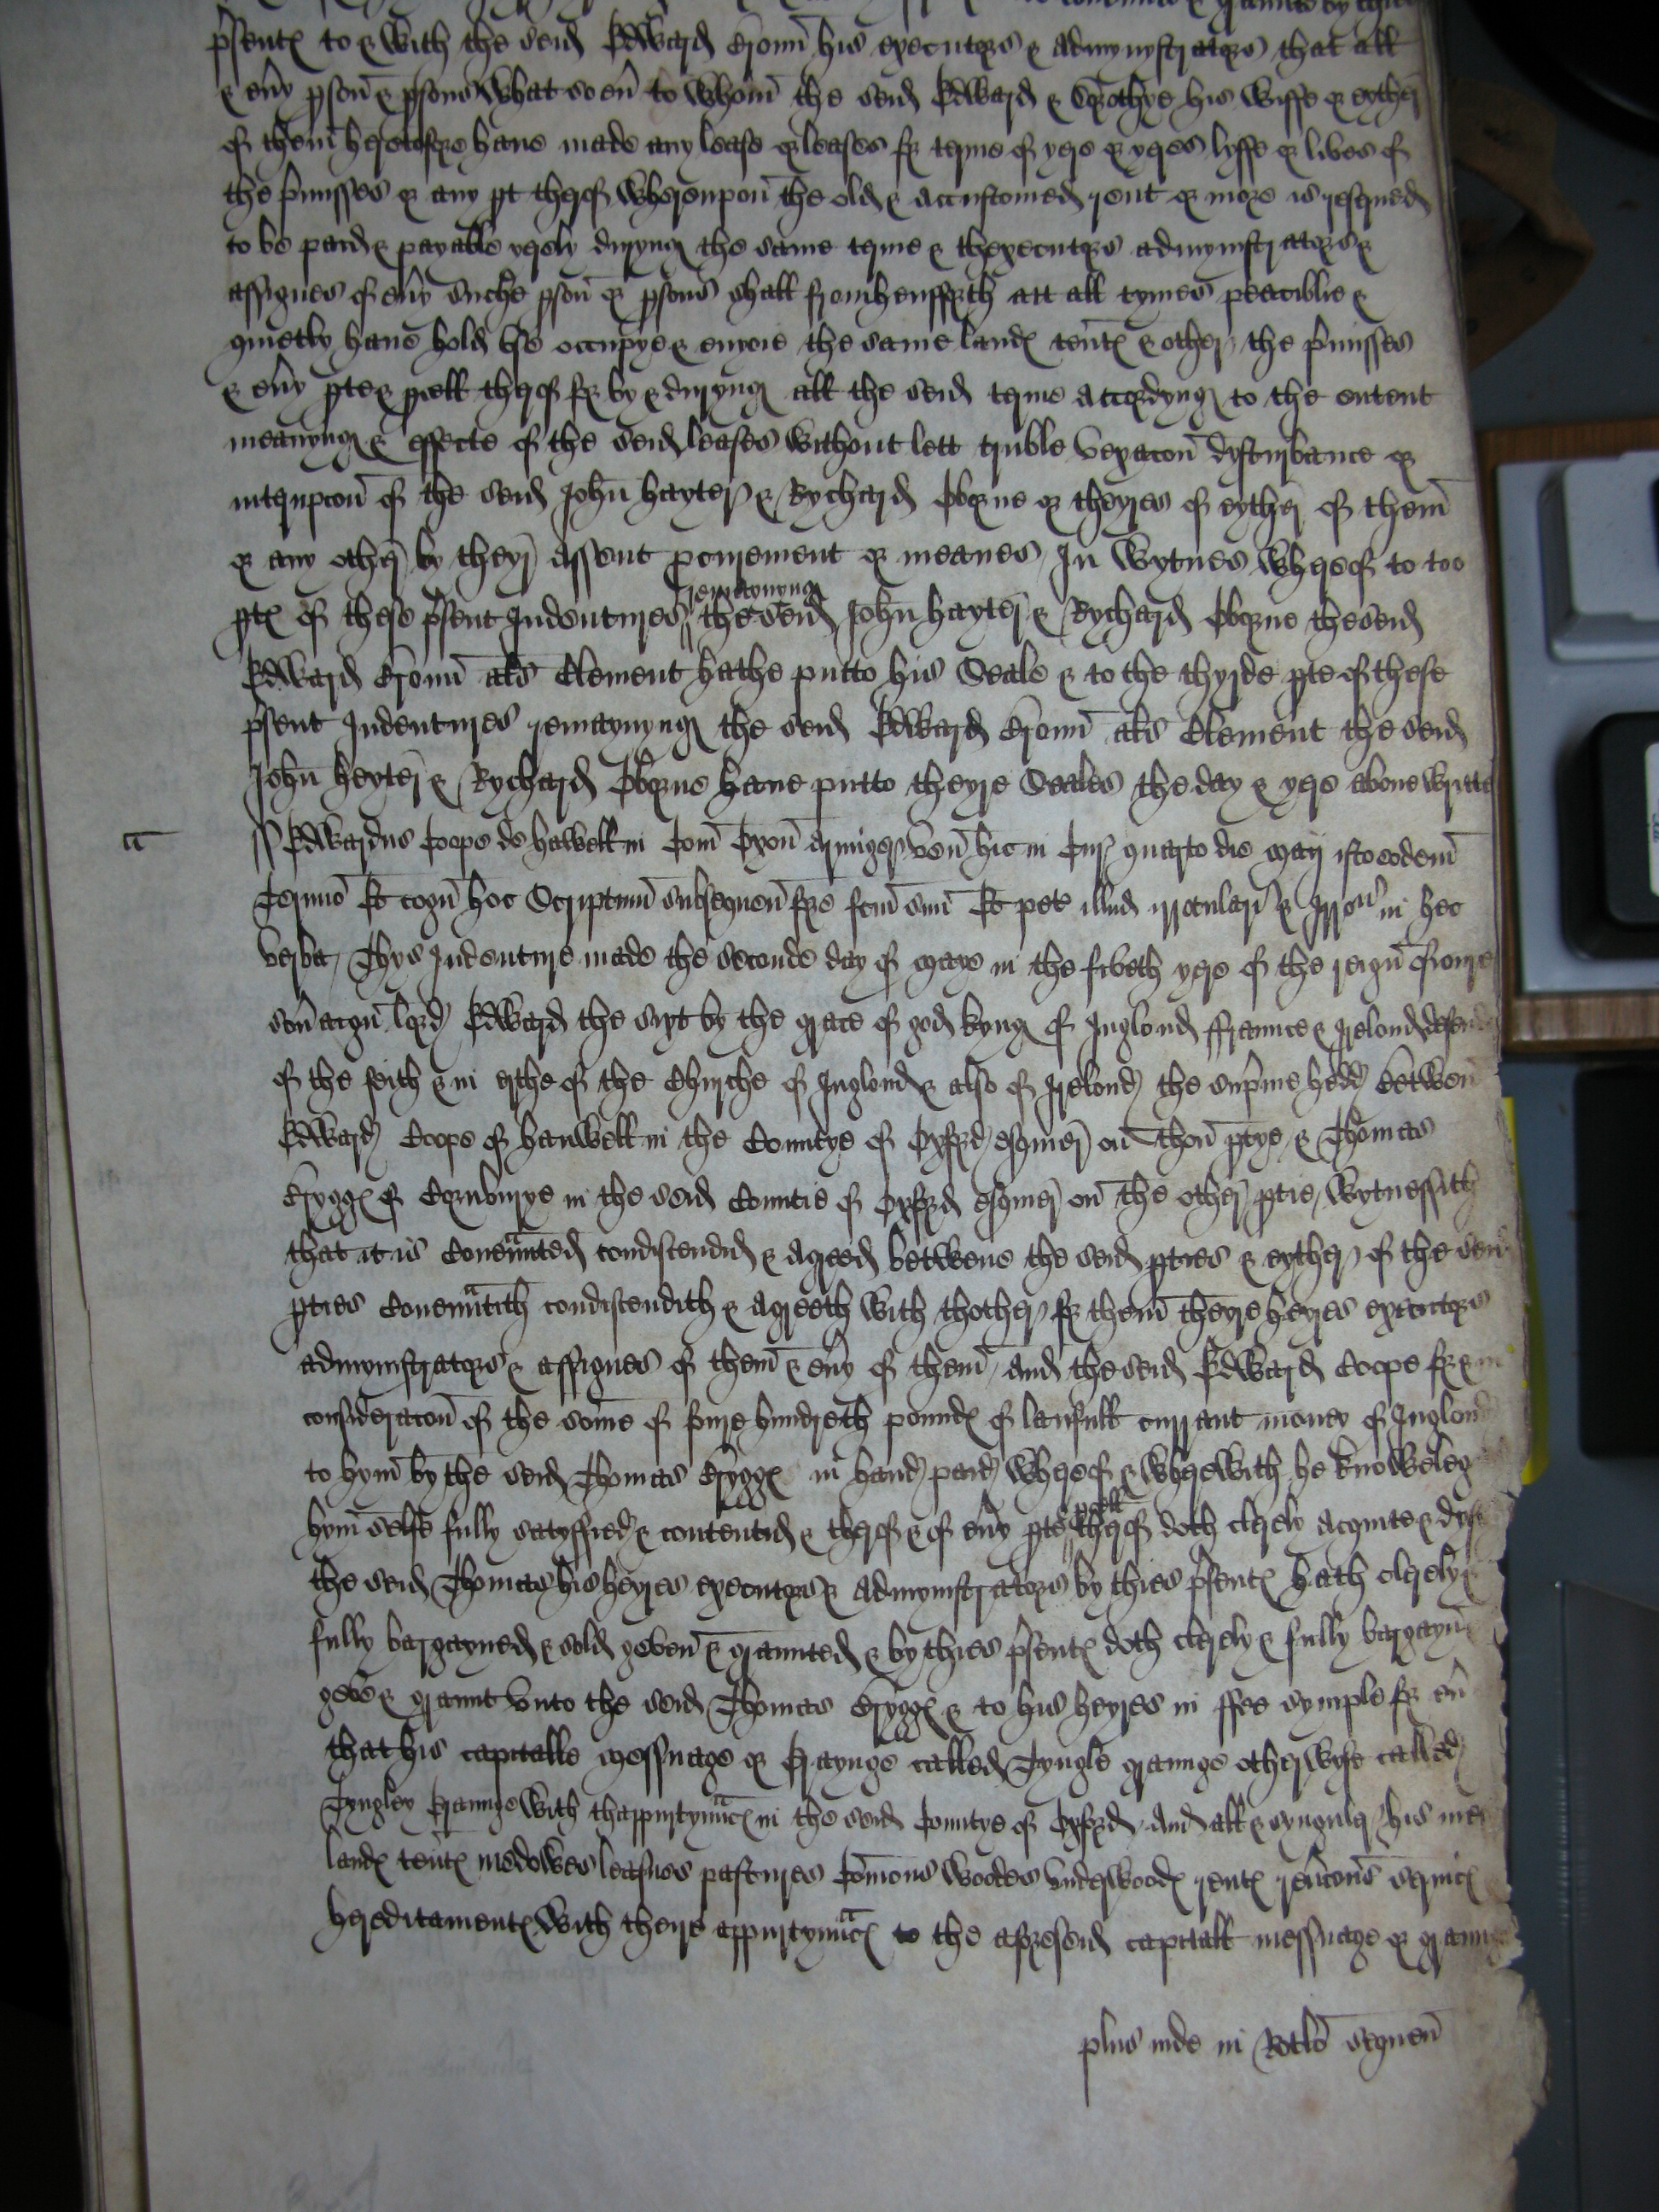 p̄sentꝭ to & with the seid Edward Cronn̄ his executors & admynystrators that all
& eūy p̱son̄ & p̱sons whatsoeū to whom̄ the seid Edward & Dorothye his wiffe or eyther
of them̄ heretofore haue made any lease or leases for terme of yere or yeres lyffe or lives of
the p̄misses or any p̱t therof wherevpon̄ the old & accustomed rent or more is reserued
to be paid & payable yerely duryng the same terme & thexecutors admynistrators &
assignes of eūy suche p̱son̄ or p̱sons shall fromhensforth att all tymes peaciblie &
quietly haue hold vse occupye & enioie the same landꝭ teñtꝭ & other the p̄misses
& eūy p̱te & p̱cell therof for by & duryng all the seid terme accordyng to the entent
meanyng & effecte of the seid leases without lett truble vexacon̄ dysturbance or
interupcon̄ of the seid John̄ hayter & Rychard Oborne or theyres of eyther of them̄
or any other by theyr assent p̱curement or meanes In wytnes wherof to too
p̱tꝭ of these p̄sent Indentures remaynyng the seid John̄ hayter & Rychard Oborne the seid
Edward Cronn̄ al̄s Clement hathe putto his Seale & to the thyrde p̱te of these
p̄sent Indentures remaynyng the seid Edward Cronn̄ al̄s Clement the seid
John̄ heyter & Rychard Oborne haue putto theyre Seales the day & yere aboue writte
Edwardus Coope de hawell in Com̄ Oxon̄ armiger ven̄ hic in Cur̄ quarto die maij isto eodem̄
Termino Et cogn̄ hoc Scriptum̄ subsequen̄ fore fcm̄ suū Et pete illud irrotulari & Irro in hec
verba Thys Indenture made the seconde day of maye in the fiveth yere of the reign̄ of oure
soūaign̄ lord Edward the sixt by the grace of god kyng of Inglond ffraunce & Irelond defend
of the feith & in erthe of the Churche of Inglond & also of Irelond the sup̄me hedd Betwen̄
Edward Coope of hanwell in the Countye of Oxford esquier on̄ thon̄ p̱tye & Thomas
Bryggꝭ of Cornburye in the seid Countie of Oxford esquier on̄ the other p̱tie wytnessith
that it is Couen̄nted condiscendid & agreed betwene the seid p̱ties & eyther of the seid
p̱ties Couen̄ntith condiscendith & agreeth with thother for them̄ theyre heyres executors
admynistrators & assignes of them̄ & eūy of them̄ and the seid Edward Coope for & in
consideracon̄ of the some of foure hundreth poundꝭ of laufull currant money of Inglond
to hym̄ by the seid Thomas Bryggꝭ in hand paid wherof & wherewith he knowleleg
hym̄ selfe fully satysfied & contentid & therof & of eūy p̱te p̱cell therof doth clerely acquite &
the seid Thomas his heyres executors & admynistrators by thies p̄sentꝭ hath clerely &
fully bargayned & sold geven̄ & graunted & by thies p̄sentꝭ doth clerely & fully bargayn̄
geve & graunt vnto the seid Thomas Bryggꝭ & to his heyres in ffee symple for eū
that his capitalle messuage or Grayngе called Tyngle graunge otherwyse called
Tyngley Graunge with thappurtyn̄ncꝭ in the seid Countye of Oxford And all & synguler his
landꝭ teñtꝭ medowes leasues pastures Com̄ons woodes vnderwoodꝭ rentꝭ reūcons seruicꝭ
hereditamentꝭ with theire appurtyn̄ncꝭ to the aforeseid capitall messuage or graunge
plus inde in Rotlo sequen̄